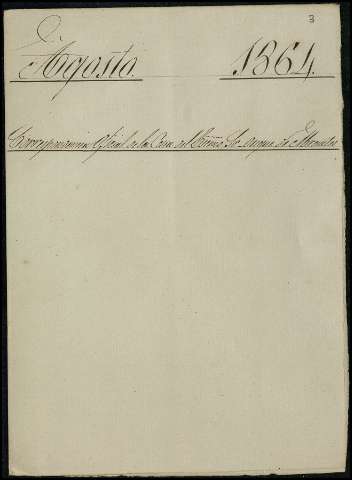 3
Agosto. 1864.
Correspondencia Oficial de la Casa del Exmo Sr. Duque de